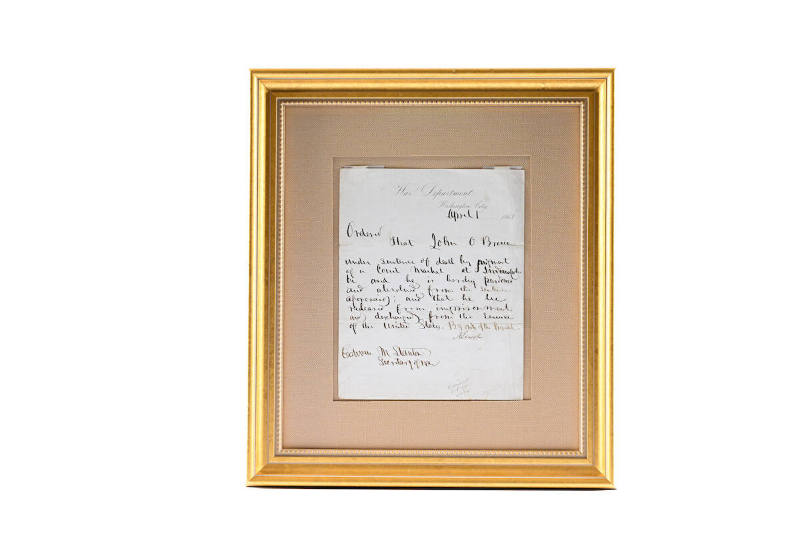 War Department
Washington City
April 1 1863
Ordered
That John O Brien
under sentence of death by
of a Court Martial at
be and he is hereby pardoned
and absolved from the sentence
aforesaid; and that he be
released from imprisonment
and discharged from the service
of the United States. By order of the President
Edwin M Stanton
Secretary of War